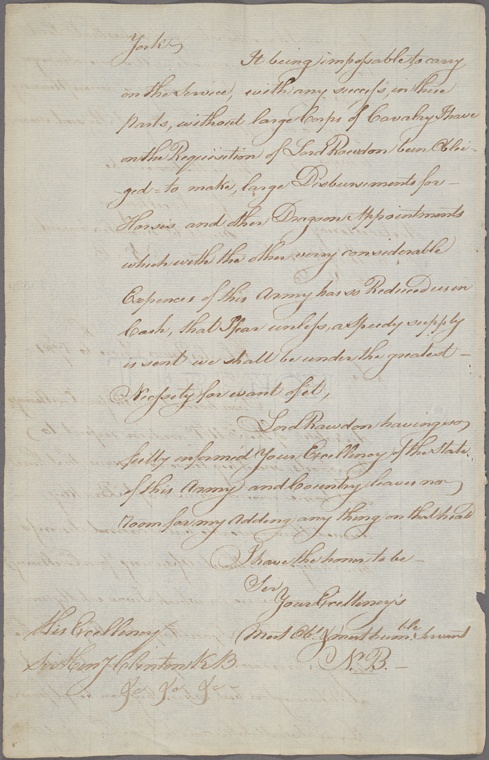 York
It being impossable to carry
on the Service, with any success, in these
parts, without large Corps of Cavalry I have
on the Requisition of Lord Rawdon been Obli-
-ged to make, large Disbursements for
Horses and other Dragoon Appointments
which with the other very considerable
Expences of this Army has so Reduced us in
Cash, that I fear unless, a speedy supply
is sent we shall be under the greatest
Necessity for want of it,
Lord Rawdon having so
fully informed Your Excellency of the State
of this Army and Country leaves no
room for my Adding any thing on that head
I have the honor to be
Sir
Your Excellency's
Most Obt. & most humble Servant
N. B.
His Excellency
Sir Heny Clinton K B
&c &c &c